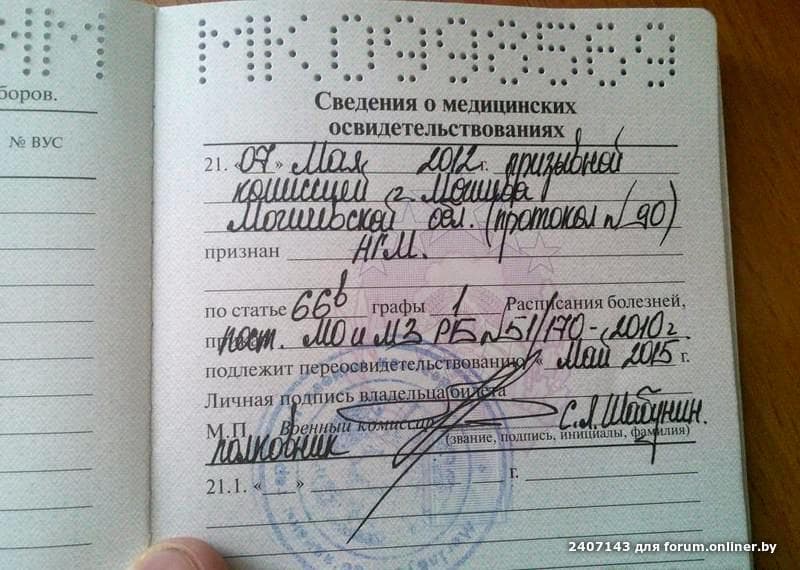 МК 0998569
боров.
№ ВУС
Сведения о медицинских
освидетельствованиях
21. «07» Мая 2012 г. призывной
комиссией г. Могилёва
Могилевской обл. (протокол № 90)
признан НГМ.
по статье 66в графы 1 Расписания болезней,
пост. МО и МЗ РБ №51/170-2010г.
подлежит переосвидетельствованию « Май 2015 г.
Личная подпись владельца билета
М.П. Военный комиссар С.А. Шабунин.
полковник (звание, подпись, инициалы, фамилия)
21.1. «___» г.
2407143 для forum.onliner.by